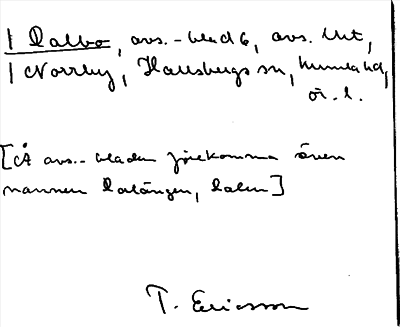 | Dalbo, avs.-blad 6, avs. litt,
| Norrby, Hallsbergs sn, Kumla hd,
ör. l.
[Å avs.-bladen förekomma även
namnen Dalängen, Dalen]
T. Ericsson